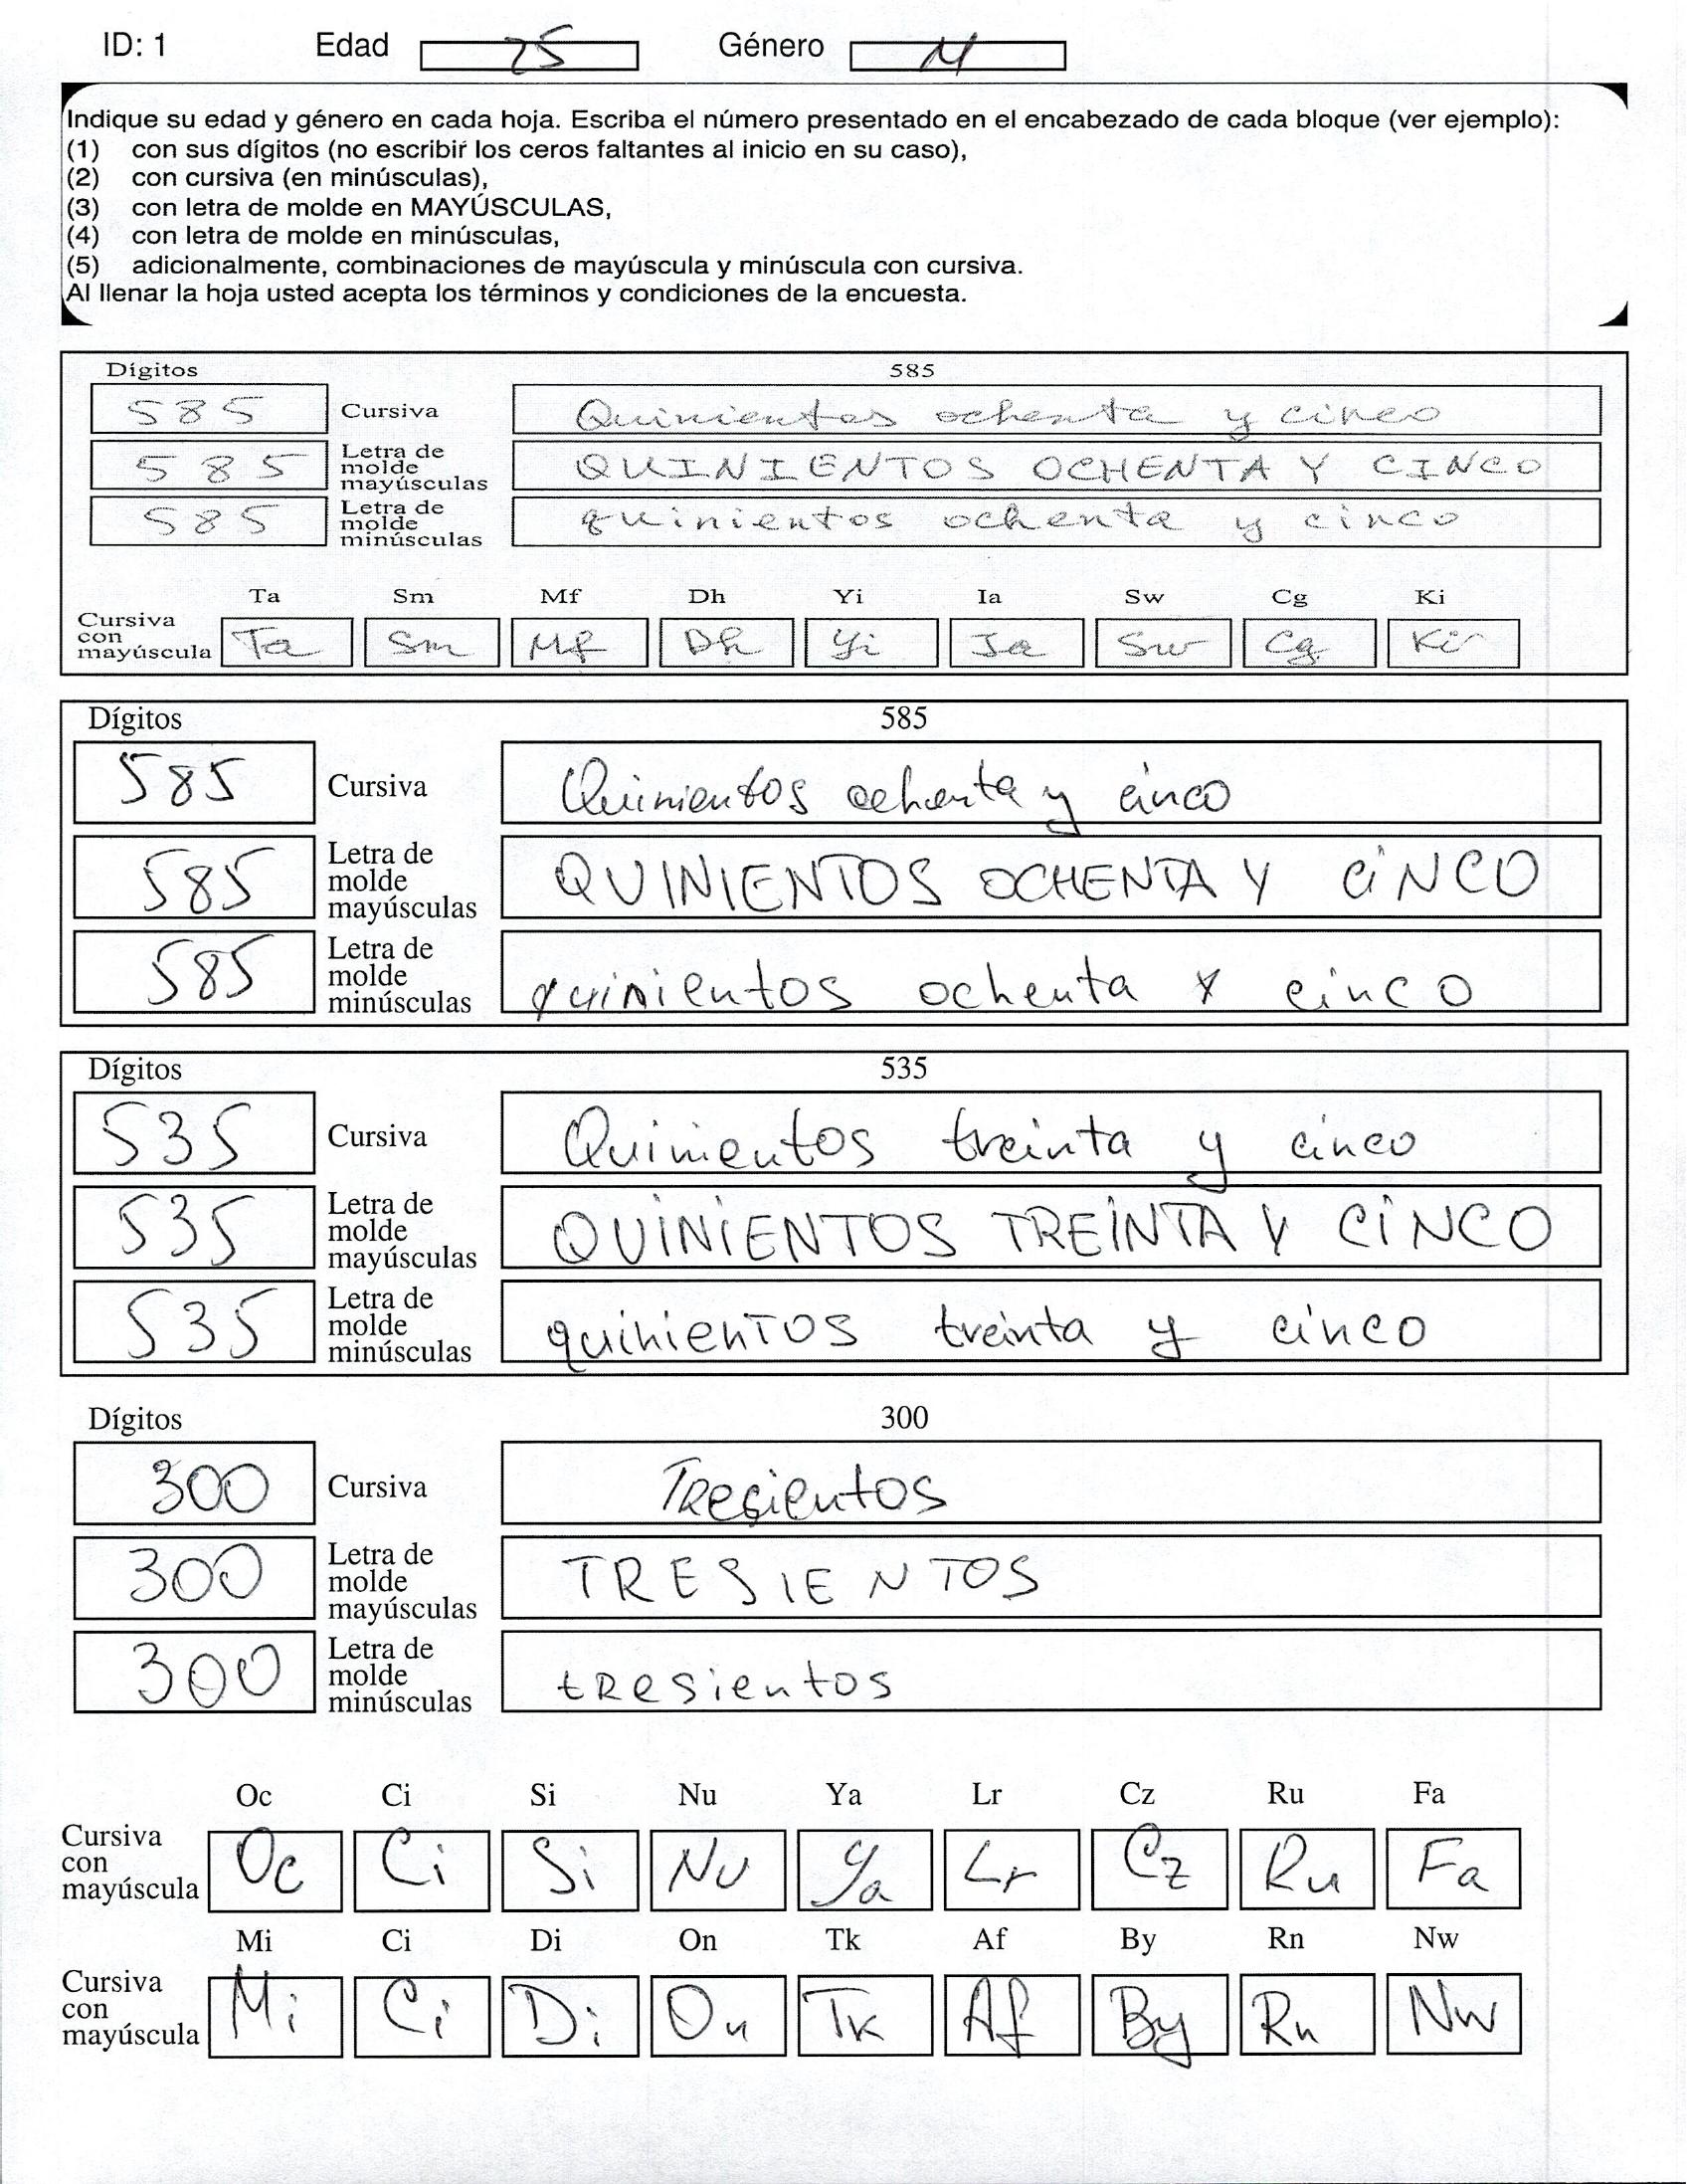 ID: 1 Edad 25 Género M
Indique su edad y género en cada hoja. Escriba el número presentado en el encabezado de cada bloque (ver ejemplo):
(1) con sus dígitos (no escribir los ceros faltantes al inicio en su caso),
(2) con cursiva (en minúsculas),
(3) con letra de molde en MAYÚSCULAS,
(4) con letra de molde en minúsculas,
(5) adicionalmente, combinaciones de mayúscula y minúscula con cursiva.
Al llenar la hoja usted acepta los términos y condiciones de la encuesta.
Dígitos 585
585 Cursiva Quinientos ochenta y cinco
585 Letra de molde mayúsculas QUINIENTOS OCHENTA Y CINCO
585 Letra de molde minúsculas quinientos ochenta y cinco
Ta Sm Mf Dh Yi Ia Sw Cg Ki
Cursiva con mayúscula Ta Sm Mf Dh Yi Ia Sw Cg Ki
Dígitos 585
585 Cursiva Quinientos ochenta y cinco
585 Letra de molde mayúsculas QUINIENTOS OCHENTA Y CiNCO
585 Letra de molde minúsculas quinientos ochenta y cinco
Dígitos 535
535 Cursiva Quinientos treinta y cinco
535 Letra de molde mayúsculas QUINiENTOS TREiNTA Y CiNCO
535 Letra de molde minúsculas quinienTOS treinta y cinco
Dígitos 300
300 Cursiva TResientos
300 Letra de molde mayúsculas TRESIENTOS
300 Letra de molde minúsculas tResientos
Oc Ci Si Nu Ya Lr Cz Ru Fa
Cursiva con mayúscula Oc Ci Si Nu Ya Lr Cz Ru Fa
Mi Ci Di On Tk Af By Rn Nw
Cursiva con mayúscula Mi Ci Di On Tk Af By Rn Nw